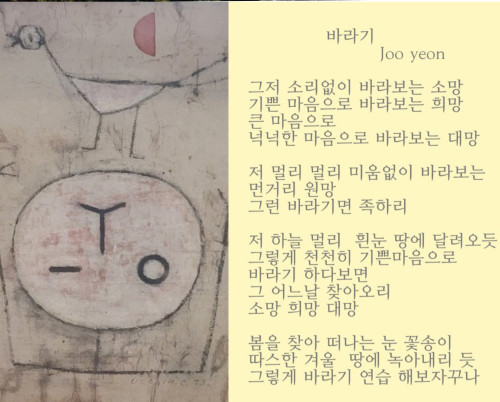 바라기
Joo yeon
그저 소리없이 바라보는 소망
기쁜 마음으로 바라보는 희망
큰 마음으로
넉넉한 마음으로 바라보는 대망
저 멀리 멀리 미움없이 바라보는
먼거리 원망
그런 바라기면 족하리
저 하늘 멀리 흰눈 땅에 달려오듯
그렇게 천천히 기쁜마음으로
바라기 하다보면
그 어느날 찾아오리
소망 희망 대망
봄을 찾아 떠나는 눈 꽃송이
따스한 겨울 땅에 녹아내리 듯
그렇게 바라기 연습 해보자꾸나